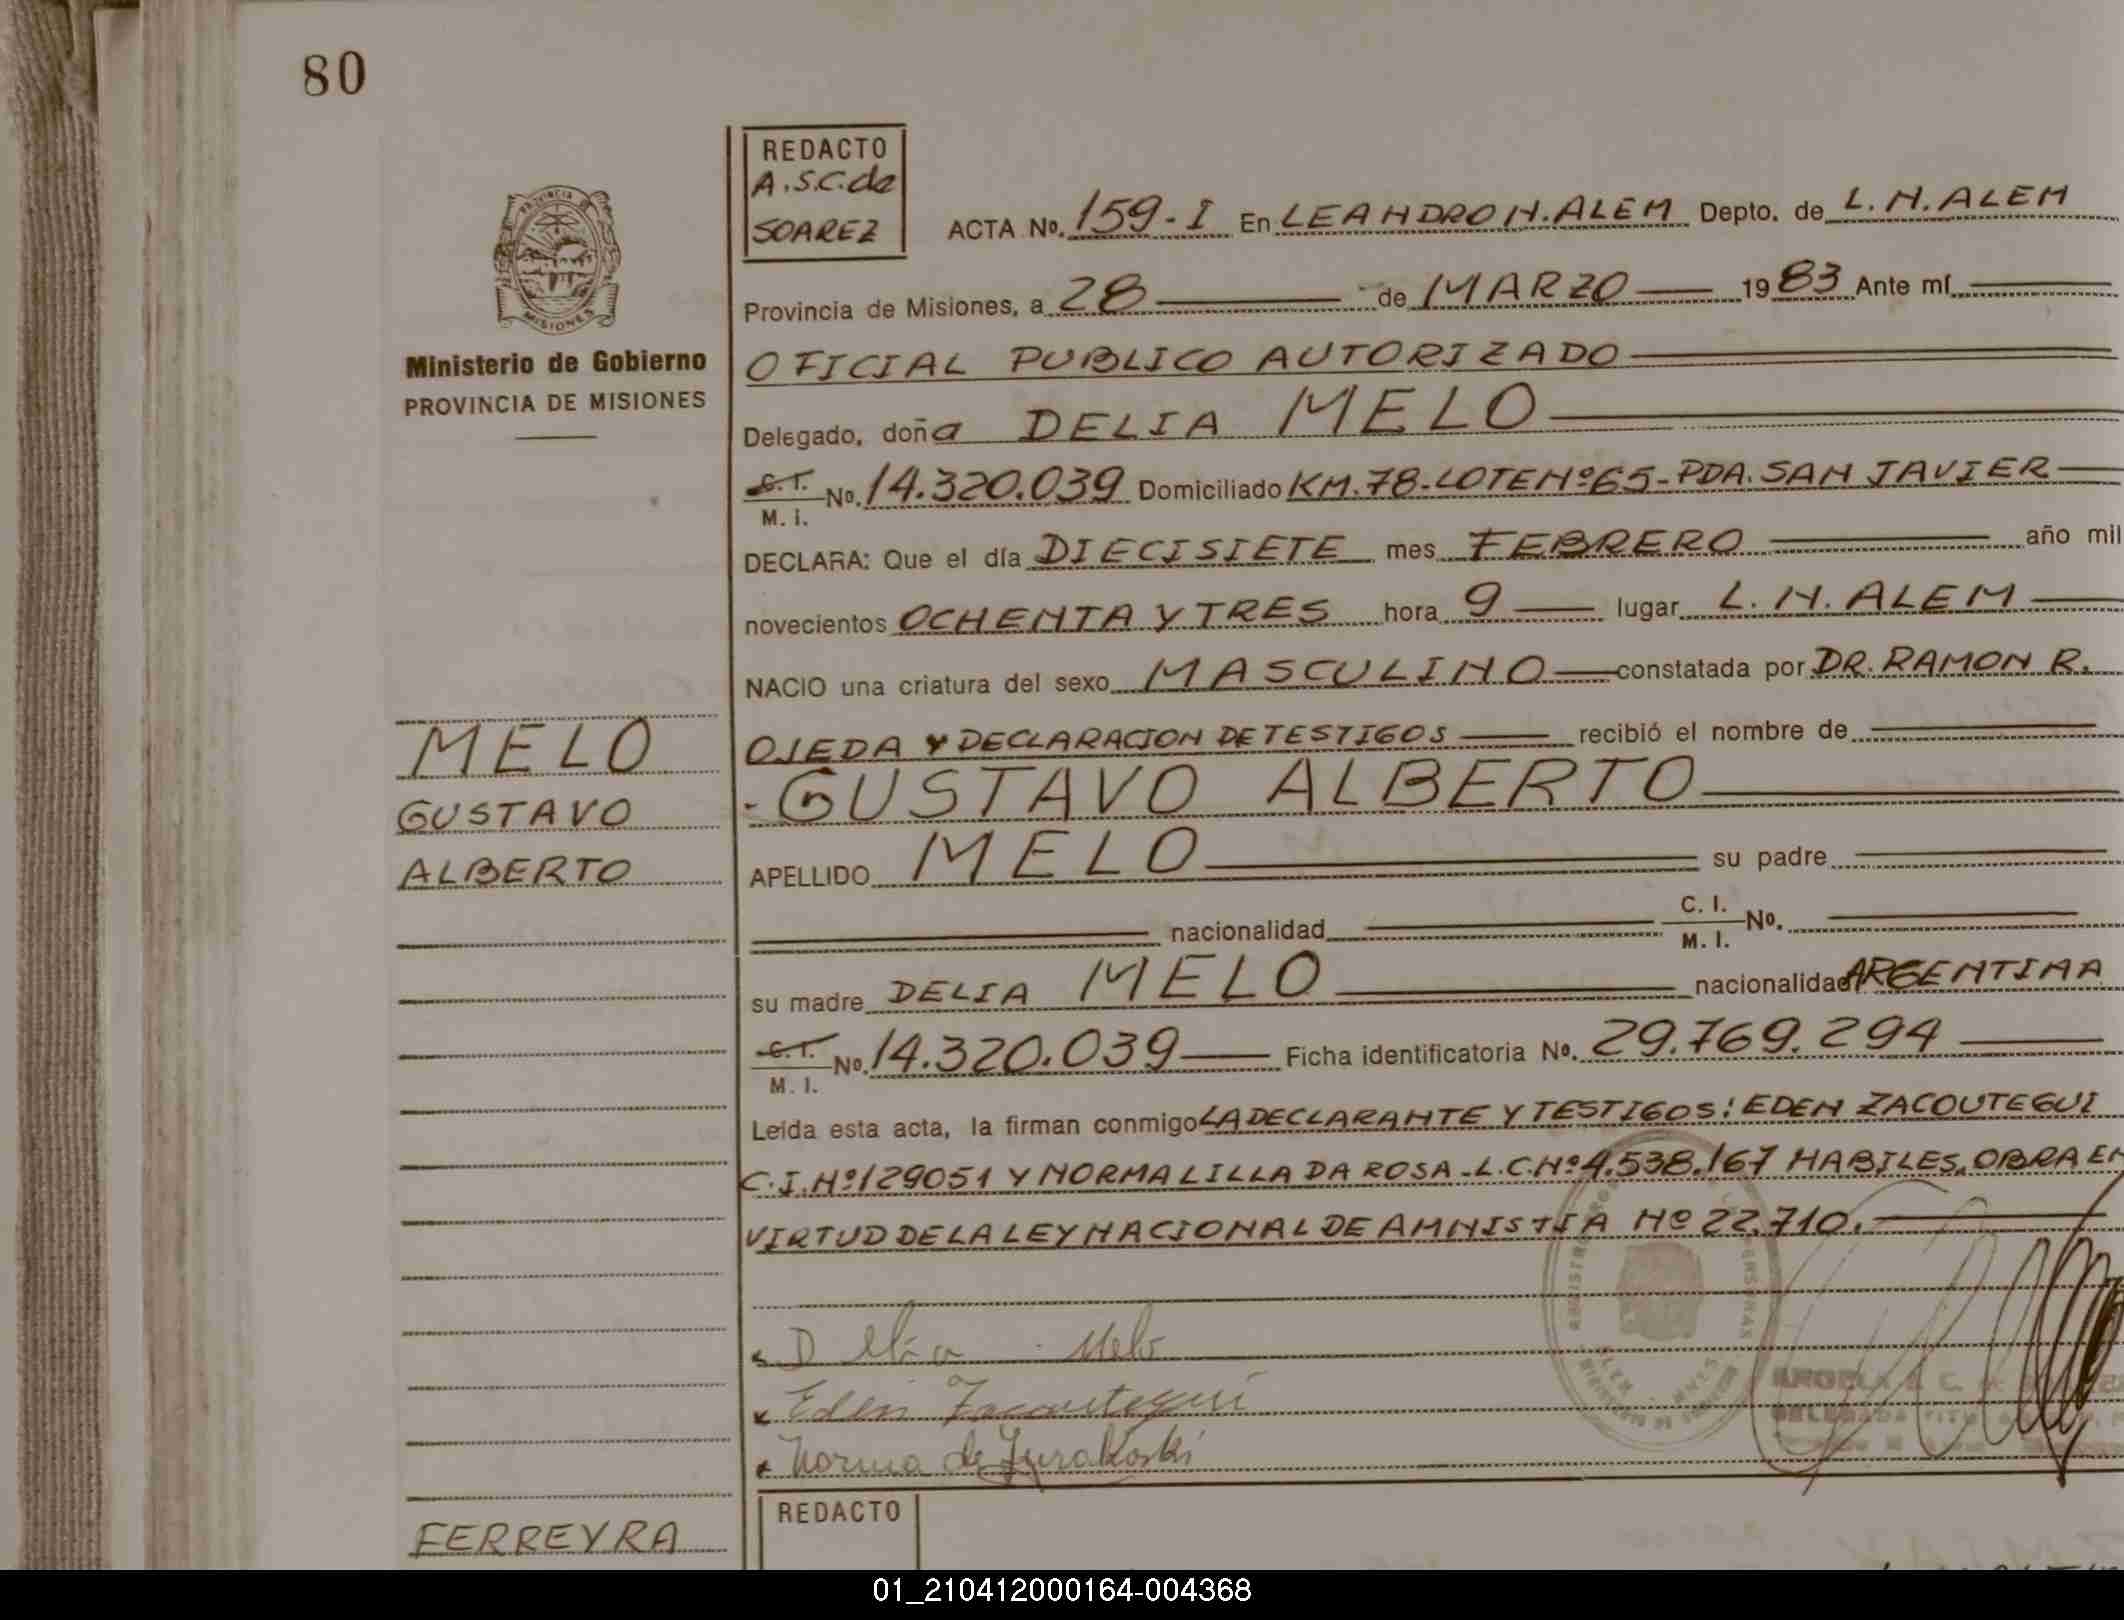 80
REDACTO
A.S.C.de
SOAREZ
ACTA No. 159-I En LEANDRO N. ALEM Depto. de L. N. ALEM
Provincia de Misiones, a 28 de MARZO 1983 Ante mí
OFICIAL PUBLICO AUTORIZADO
Delegado, doña DELIA MELO
C. I.
M. I. No. 14.320.039 Domiciliado KM.78-LOTE Nº65-PDA. SAN JAVIER
DECLARA: Que el día DIECISIETE mes FEBRERO año mil
novecientos OCHENTA Y TRES hora 9 lugar L. N. ALEM
NACIO una criatura del sexo MASCULINO constatada por DR. RAMON R.
OJEDA Y DECLARACION DE TESTIGOS recibió el nombre de
GUSTAVO ALBERTO
APELLIDO MELO su padre
nacionalidad C. I.
M. I. No.
su madre DELIA MELO nacionalidad ARGENTINA
C. I.
M. I. No. 14.320.039 Ficha identificatoria No. 29.769.294
Leída esta acta, la firman conmigo LA DECLARANTE Y TESTIGOS: EDEN ZACOUTEGUI
C.I.Nº129051 Y NORMA LILLA DA ROSA-L.C.Nº4.538.167 HABILES. OBRA EN
VIRTUD DE LA LEY NACIONAL DE AMNISTIA Nº 22.710.
Delia Melo
Eden Zacoutegui
Norma de Jurakoski
PROVINCIA DE
MISIONES
Ministerio de Gobierno
PROVINCIA DE MISIONES
MELO
GUSTAVO
ALBERTO
FERREYRA
REDACTO
01_210412000164-004368